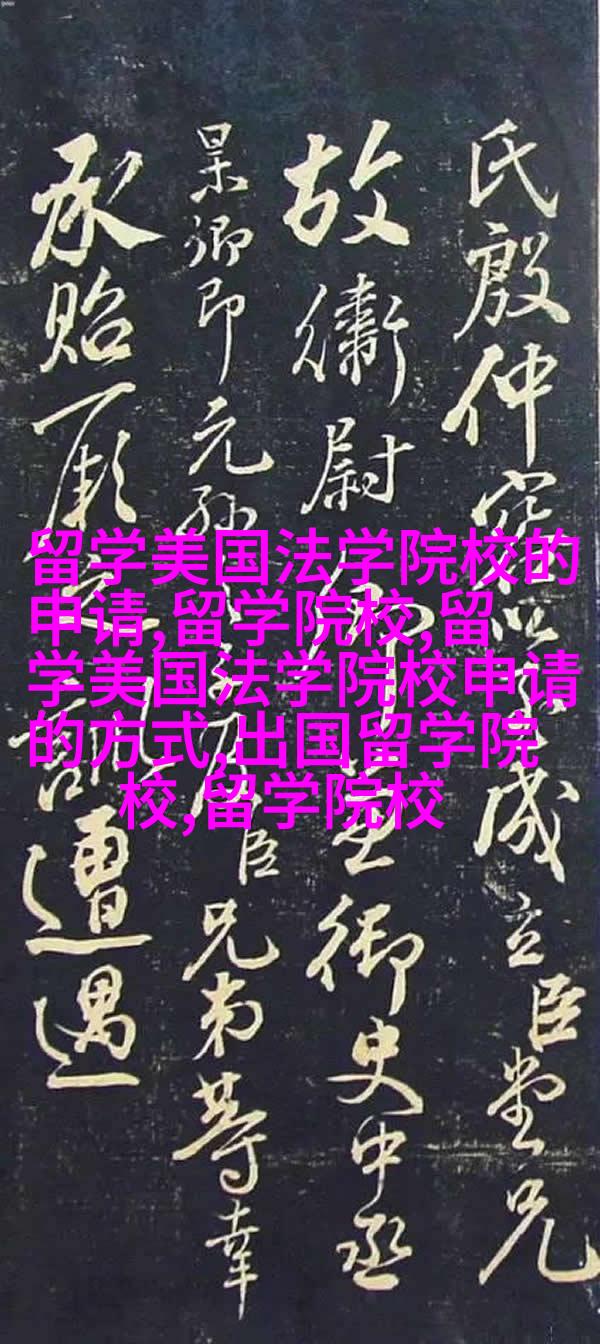 氏殷仲容以成立臣堂兄
故衛尉卿兼御史中丞
杲卿即元孫臣兄弟等幸
承貽厥之訓遭遇
留学美国法学院校的
申请,留学院校,留
学美国法学院校申请
的方式,出国留学院
校,留学院校